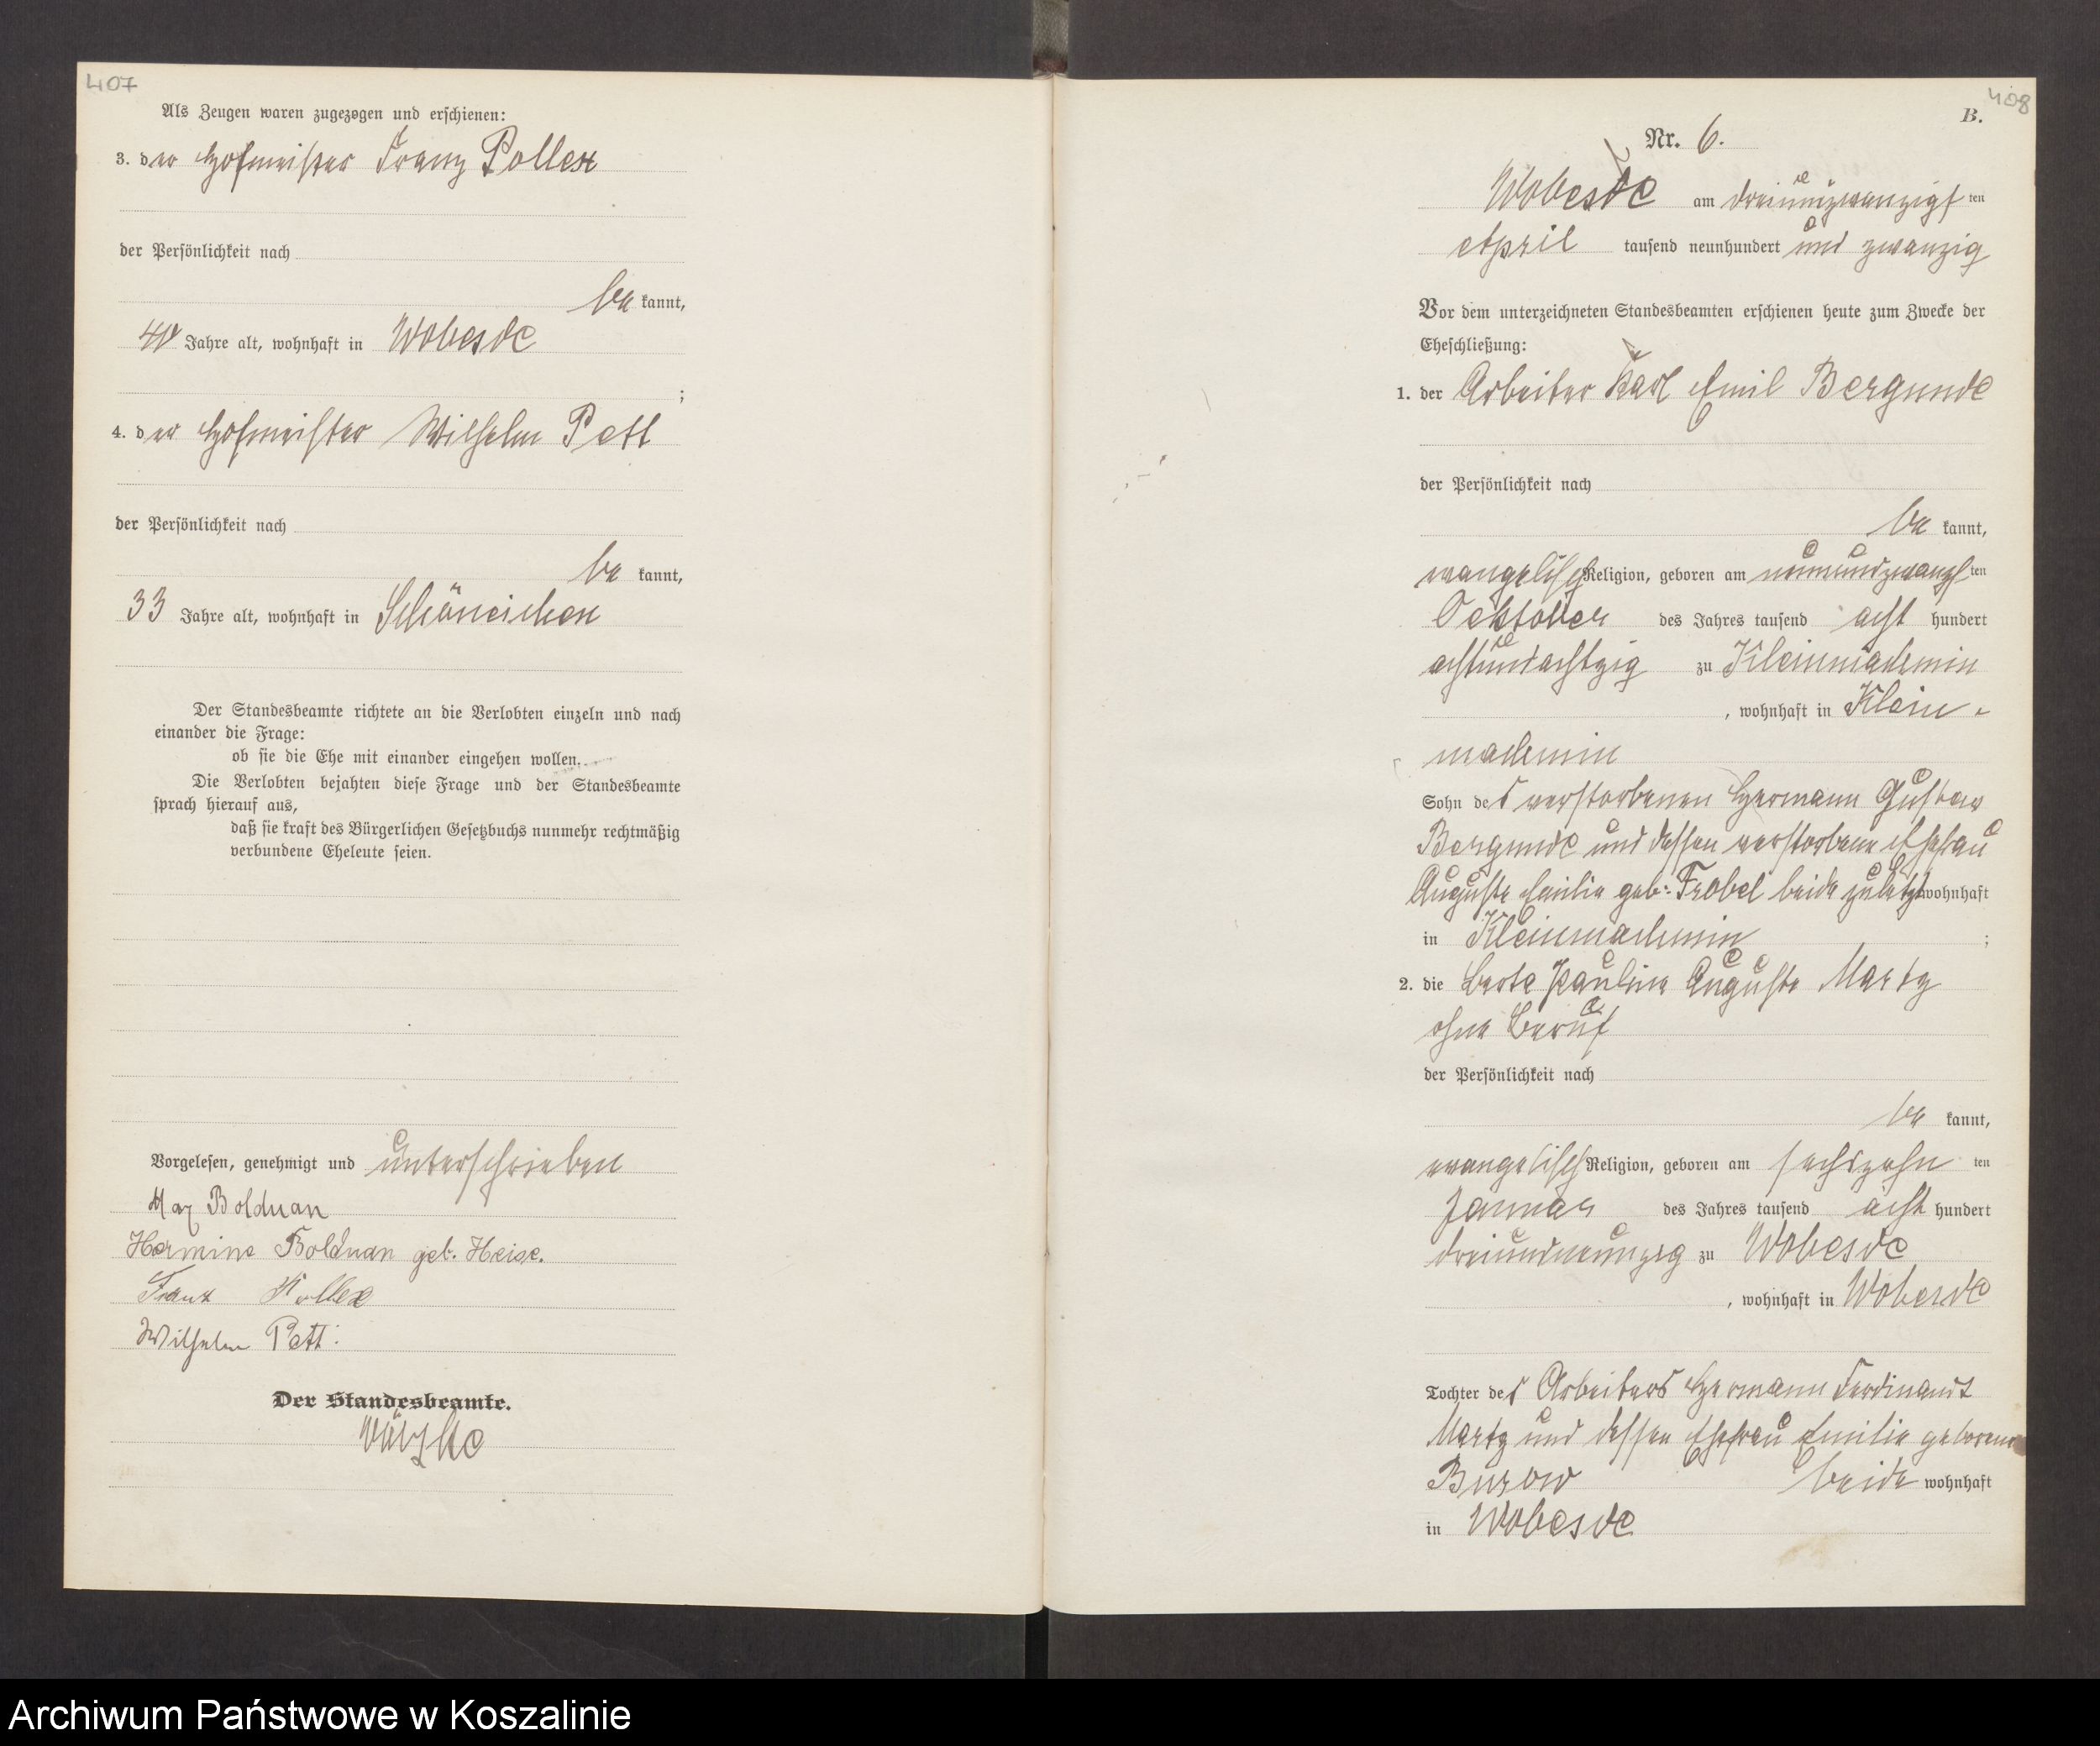 407
Als Zeugen waren zugezogen und erschienen:
3. der Hofmeister Franz Pollex
der Persönlichkeit nach
be kannt,
40 Jahre alt, wohnhaft in Wobesde
;
4. der Hofmeister Wilhelm Pett
der Persönlichkeit nach
be kannt,
33 Jahre alt, wohnhaft in Schöneichen
Der Standesbeamte richtete an die Verlobten einzeln und nach
einander die Frage:
ob sie die Ehe mit einander eingehen wollen.
Die Verlobten bejahten diese Frage und der Standesbeamte
sprach hierauf aus,
daß sie kraft des Bürgerlichen Gesetzbuchs nunmehr rechtmäßig
verbundene Eheleute seien.
Vorgelesen, genehmigt und unterschrieben
Max Bolduan
Hermine Bolduan geb. Heise.
Franz Pollex
Wilhelm Pett.
Der Standesbeamte.
408
B.
Nr. 6.
Wobesde am dreiundzwanzigsten
April tausend neunhundert und zwanzig
Vor dem unterzeichneten Standesbeamten erschienen heute zum Zwecke der
Eheschließung:
1. der Arbeiter Karl Emil Bergunde
der Persönlichkeit nach
be kannt,
evangelisch Religion, geboren am neunundzwanzigsten
Ocktober des Jahres tausend acht hundert
achtundachtzig zu Kleinmachmin
, wohnhaft in Klein-
machmin
Sohn des verstorbenen Hermann Gustav
Bergunde und dessen verstorbene Ehefrau
Auguste Emilie geb. Frobel beide zuletzt wohnhaft
in Kleinmachmin ;
2. die Berta Pauline Auguste Martz
ohne Beruf
der Persönlichkeit nach
be kannt,
evangelisch Religion, geboren am sechszehn ten
Januar des Jahres tausend acht hundert
dreiundneunzig zu Wobesde
, wohnhaft in Wobesde
Tochter des Arbeiters Hermann Ferdinandt
Martz und dessen Ehefrau Emilie geborene
Burow beide wohnhaft
in Wobesde
Archiwum Państwowe w Koszalinie